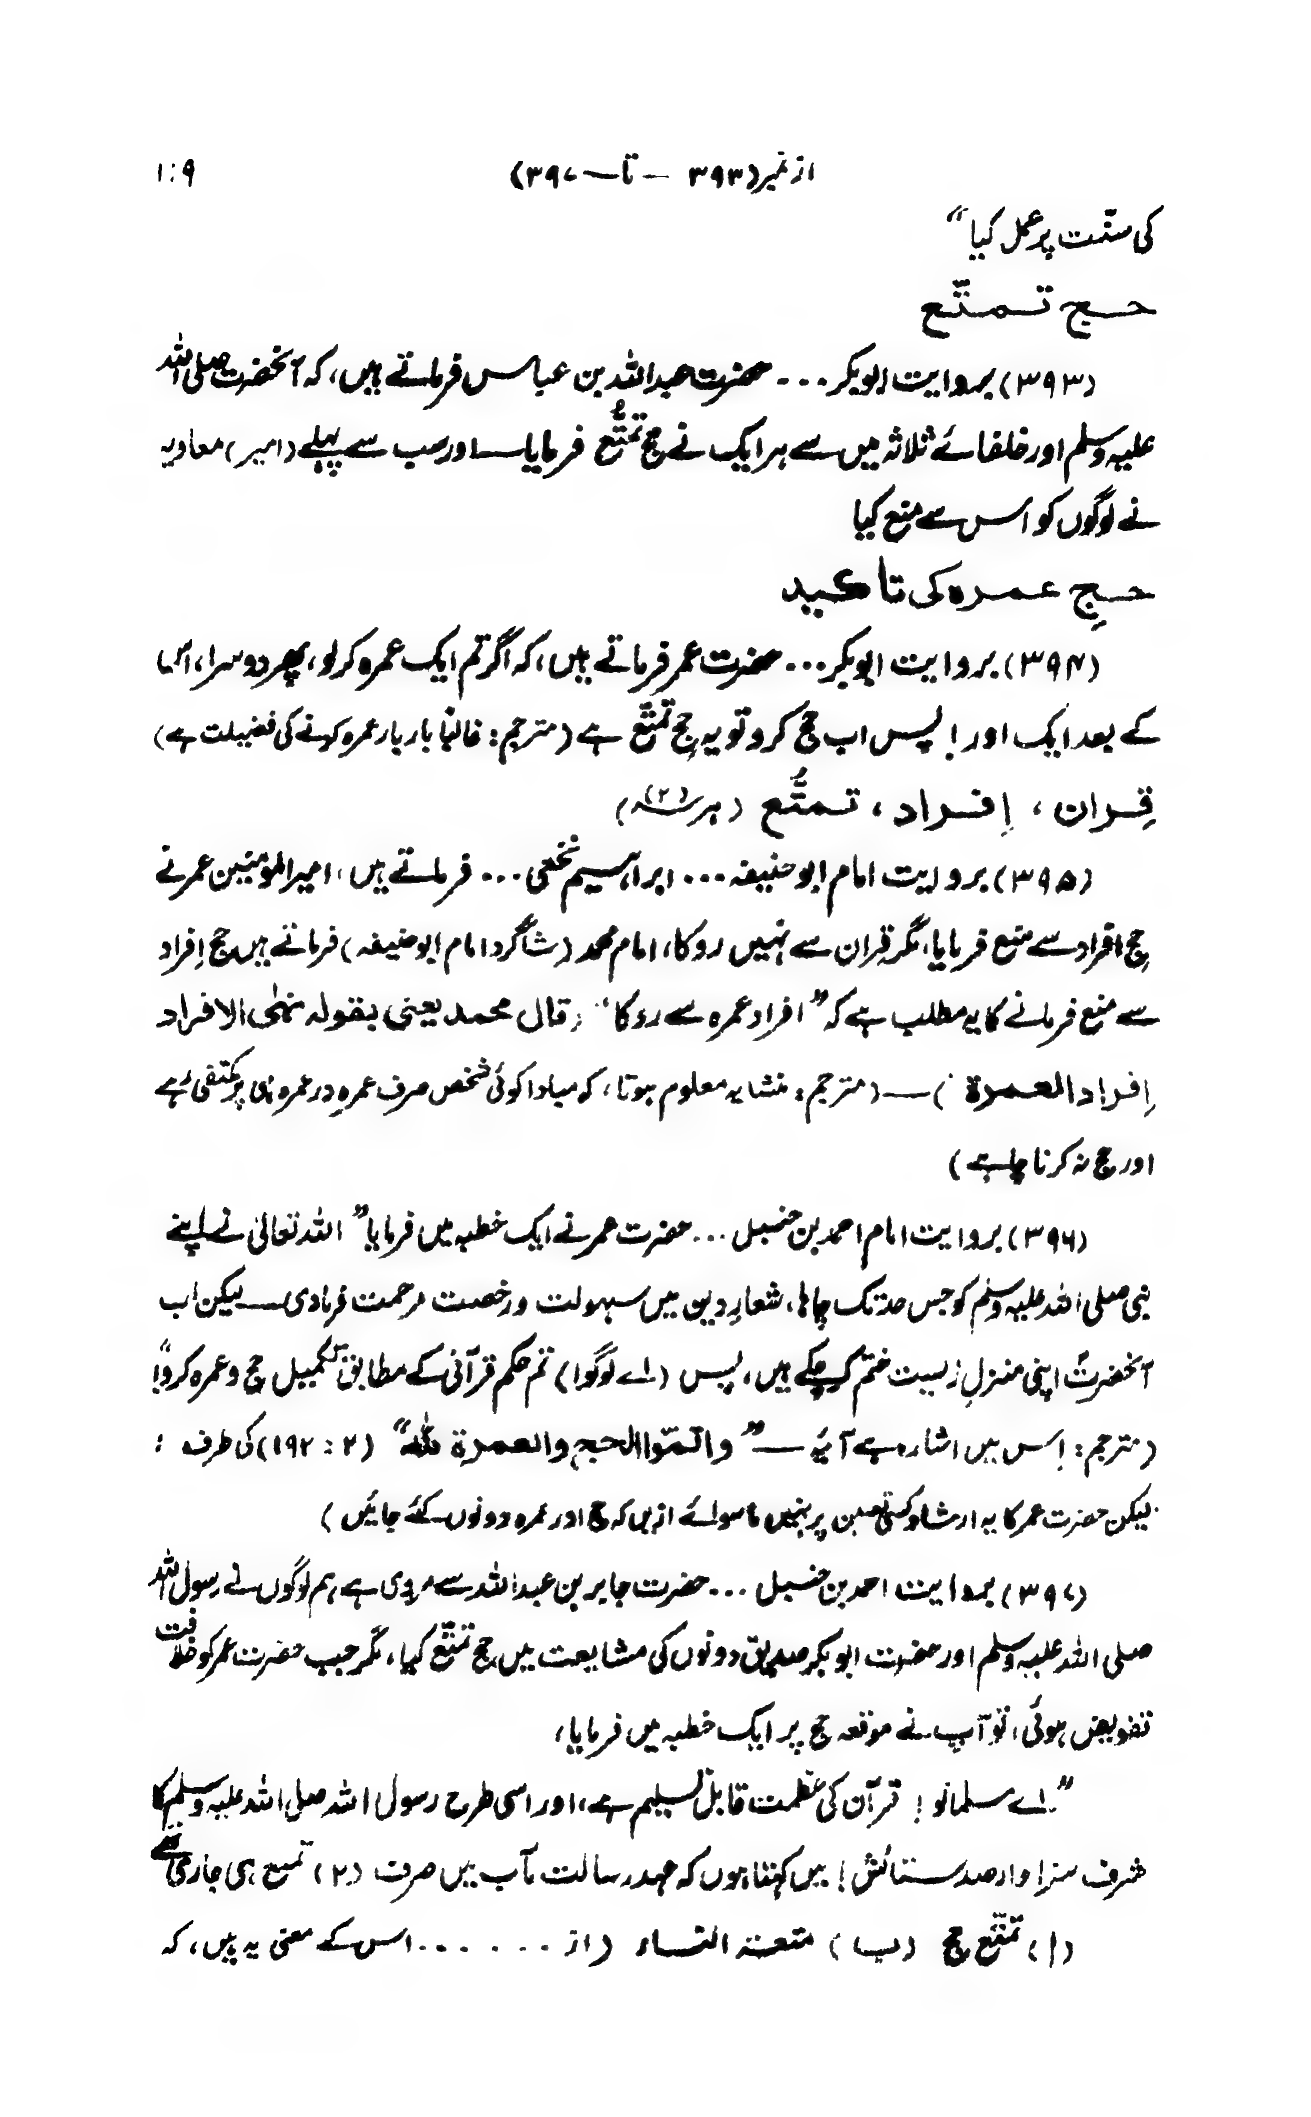 از نمبر (۳۹۳ — تا — ۳۹۷) ۱:۹
کی سنّت پر عمل کیا"
حج تمتّع
(۳۹۳) بروایت ابوبکر ... حضرت عبداللہ بن عباس فرماتے ہیں، کہ آنحضرت صلی اللہ
علیہ وسلم اور خلفائے ثلاثہ میں سے ہر ایک نے حج تمتُّع فرمایا — اور سب سے پہلے (امیر) معاویہ
نے لوگوں کو اُس سے منع کیا
حجِ عمرہ کی تاکید
(۳۹۴) بروایت ابوبکر ... حضرت عمر فرماتے ہیں، کہ اگر تم ایک عمرہ کر لو، پھر دوسرا، اس
کے بعد ایک اور! پس اب حج کرو تو یہ حجِ تمتّع ہے (مترجم: غالبًا بار بار عمرہ کرنے کی فضیلت ہے)
قِران ، اِفراد ، تمتُّع (ہر سہ) (۲)
(۳۹۵) بروایت امام ابوحنیفہ ... ابراہیم نخعی ... فرماتے ہیں، امیرالمؤمنین عمر نے
حجِ افراد سے منع فرمایا، مگر قِران سے نہیں روکا، امام محمد (شاگرد امام ابوحنیفہ) فرماتے ہیں حج اِفراد
سے منع فرمانے کا یہ مطلب ہے کہ "افراد عمرہ سے روکا" (قال محمد یعنی بقولہ نھٰی الافراد
اِفراد العمرة) — (مترجم: منشا یہ معلوم ہوتا، کہ مبادا کوئی شخص صرف عمرہ در عمرہ ہی پر مکتفی رہے
اور حج نہ کرنا چاہے)
(۳۹۶) بروایت امام احمد بن حنبل ... حضرت عمر نے ایک خطبہ میں فرمایا "اللہ تعالیٰ نے اپنے
نبی صلی اللہ علیہ وسلم کو جس حد تک چاہا، شعارِ دین میں سہولت و رخصت مرحمت فرما دی — لیکن اب
آنحضرتؐ اپنی منزلِ زیست ختم کر چکے ہیں، پس (اے لوگو!) تم حکم قرآنی کے مطابق تکمیل حج و عمرہ کرو"!
(مترجم: اِس میں اشارہ ہے آیہ — "واتمّوا الحج والعمرة للّٰہ" (۲ : ۱۹۲) کی طرف :
لیکن حضرت عمر کا یہ ارشاد کسی تعین پر نہیں ماسوائے ازیں کہ حج اور عمرہ دونوں کئے جائیں)
(۳۹۷) بروایت احمد بن حنبل ... حضرت جابر بن عبداللہ سے مروی ہے، ہم لوگوں نے رسول اللہ
صلی اللہ علیہ وسلم اور حضرت ابوبکر صدیق دونوں کی مشایعت میں حج تمتّع کیا، مگر جب حضرت عمر کو خلافت
تفویض ہوئی، تو آپ نے موقعہ حج پر ایک خطبہ میں فرمایا،
"اے مسلمانو! قرآن کی عظمت قابل تسلیم ہے، اور اسی طرح رسول اللہ صلی اللہ علیہ وسلم کا
شرف سزاوار صد ستائش! میں کہتا ہوں کہ عہد رسالت مآب میں صرف (۲) تمتع ہی جاری تھے
(ا) تمتّع حج (ب) متعۃ النساء (از ...... اس کے معنی یہ ہیں، کہ